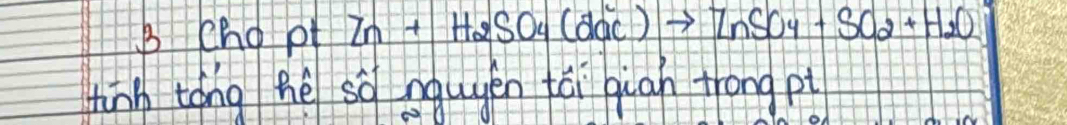 3 Cho pt Zn + H2SO4 (đặc) → ZnSO4 + SO2 + H2O
tính tổng hệ số nguyên tối giản trong pt